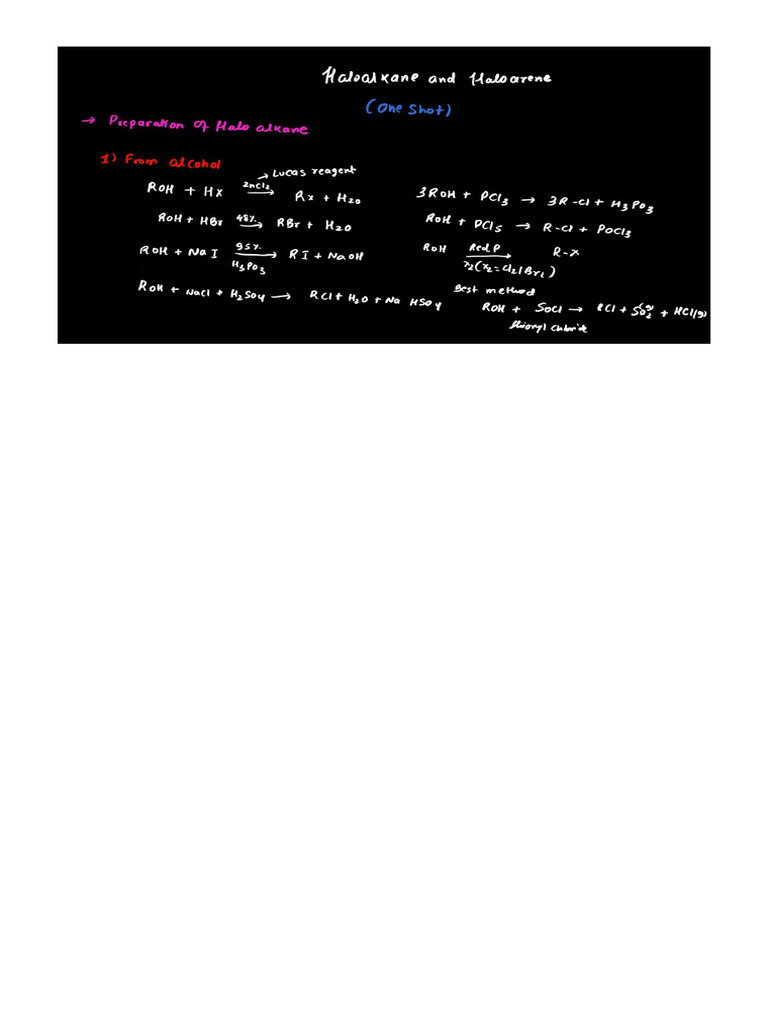 Haloalkane and Haloarene
(One Shot)
→ Preparation of Halo alkane
1) From alcohol
→ Lucas reagent
ROH + HX ZnCl2 → RX + H2O
ROH + HBr 48% → RBr + H2O
ROH + NaI 95% H3PO3 → RI + NaOH
ROH + NaCl + H2SO4 → RCl + H2O + Na HSO4
3ROH + PCl3 → 3R-Cl + H3PO3
ROH + PCl5 → R-Cl + POCl3
ROH Red P x2(x2=Cl2/Br2) → R-X
Best method
ROH + SOCl → RCl + SO2(g) + HCl(g)
thionyl chloride